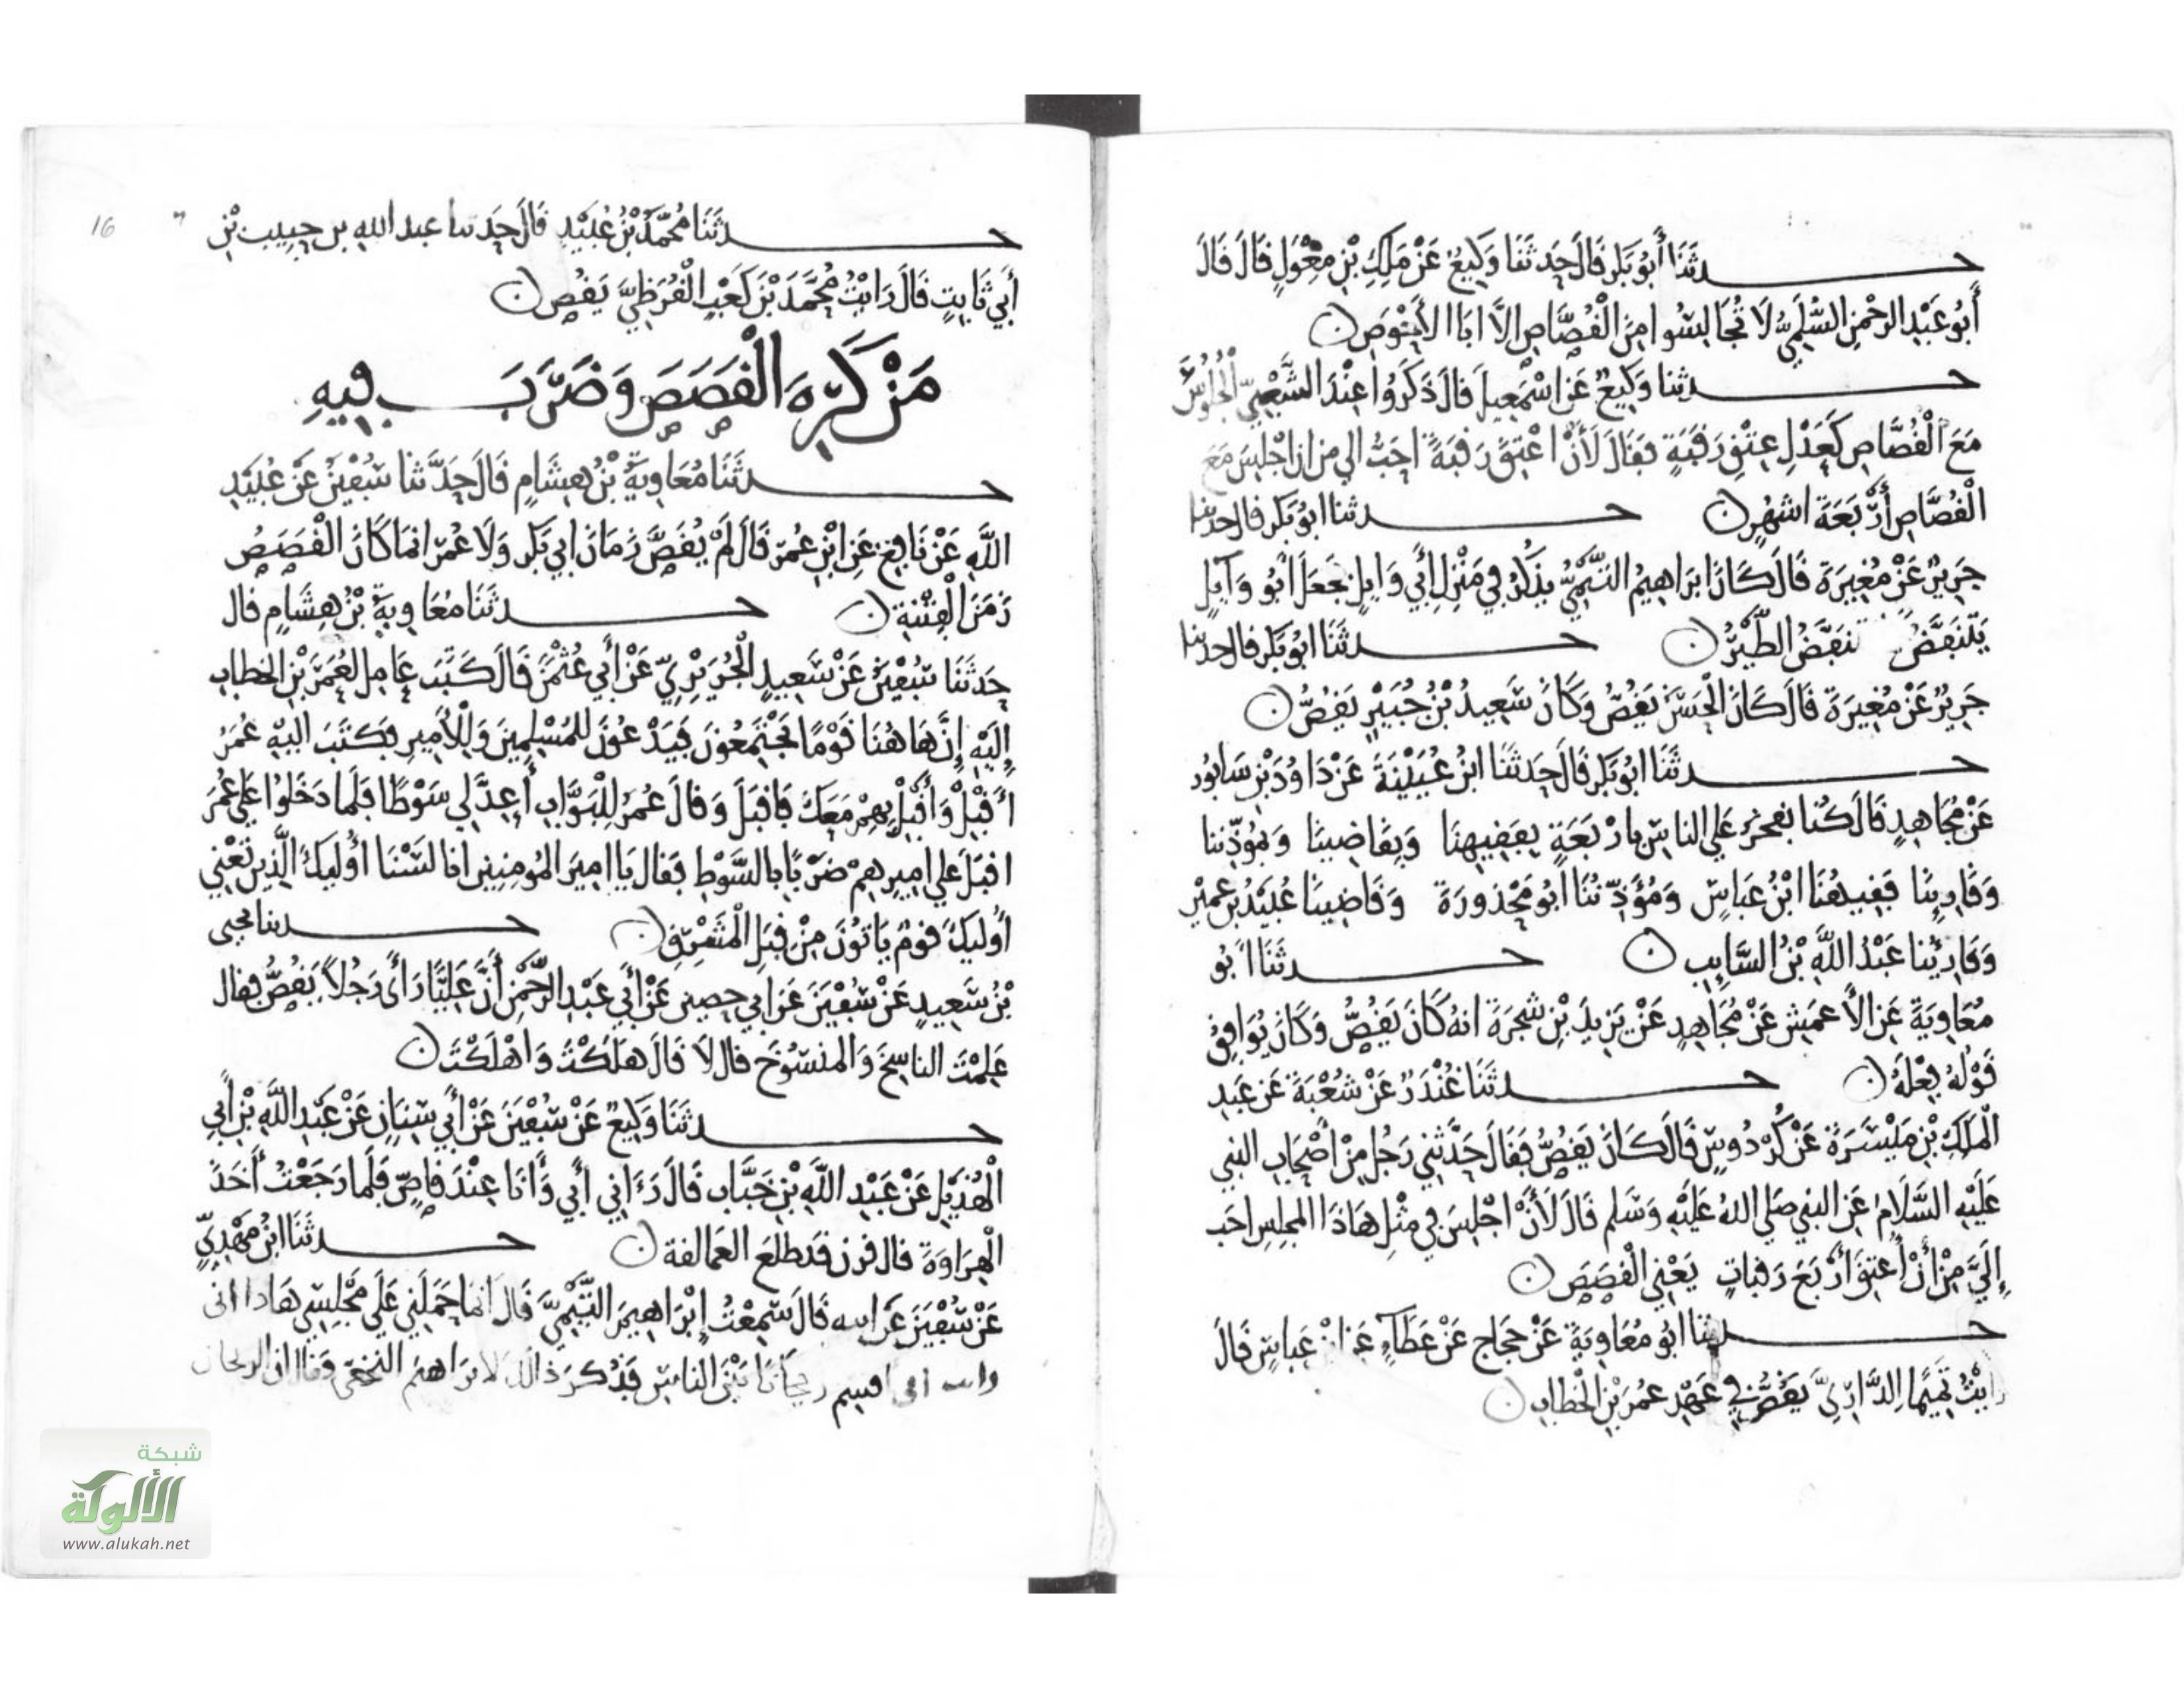 حدثنا أبو بكر قال حدثنا وكيع عن ملك بن مغول قال قال
أبو عبد الرحمن السلمي لا تجالسوا من القصاص إلا ابا الأحوص
حدثنا وكيع عن اسمعيل قال ذكروا عند الشعبي الجلوس
مع القصاص كعدل عتق رقبة فقال لأن اعتق رقبة احب الي من ان اجلس مع
القصاص أربعة اشهر حدثنا ابو بكر قال حدثنا
جرير عن مغيرة قال كان ابراهيم التيمي يذكر في منزل أبي وايل فجعل أبو وآيل
ينتفض تنفض الطير حدثنا ابو بكر قال حدثنا
جرير عن مغيرة قال كان الحسن يقص وكان سعيد بن جبير يقص
حدثنا ابو بكر قال حدثنا ابن عيينة عن داود بن سابور
عن مجاهد قال كنا نفخر علي الناس بار بعة بفقيهنا وبقاضينا وبمؤذننا
وقارئنا ففقيهنا ابن عباس ومؤذننا أبو محذورة وقاضينا عبيد بن عمير
وقارئنا عبد الله بن السايب حدثنا أبو
معاوية عن الأعمش عن مجاهد عن يزيد بن شجرة انه كان يقص وكان يوافق
قوله فعله حدثنا غندر عن شعبة عن عبد
الملك بن ميسرة عن كردوس قال كان يقص فقال حدثني رجل من أصحاب النبي
عليه السلام عن النبي صلي الله عليه وسلم قال لأن اجلس في مثل هاذا المجلس احب
إلي من أن أعتق أربع رقبات يعني القصص
حدثنا ابو معاوية عن حجاج عن عطاء عن ابن عباس قال
رايت تميما الداري يقص في عهد عمر بن الخطاب
16
حدثنا محمد بن عبيد قال حدثنا عبد الله بن حبيب بن
أبي ثابت قال رايت محمد بن كعب القرظي يقص
من كره القصص وضرب فيه
حدثنا معاوية بن هشام قال حدثنا سفين عن عبيد
الله عن نافع عن ابن عمر قال لم يقص زمان ابي بكر ولا عمر انما كان القصص
زمن الفتنة حدثنا معاوية بن هشام قال
حدثنا سفين عن سعيد الجريري عن أبي عثمن قال كتب عامل لعمر بن الخطاب
إليه إن هاهنا قوما يجتمعون فيدعون للمسلمين وللأمير فكتب اليه عمر
أقبل وأقبل بهم معك فاقبل وقال عمر للبواب أعد لي سوطا فلما دخلوا علي عمر
اقبل علي اميرهم ضربا بالسوط فقال يا امير المومنين انا لسنا أوليك الذين تعني
أوليك قوم ياتون من قبل المشرق حدثنا يحيى
بن سعيد عن سفين عن ابي حصين عن أبي عبد الرحمن أن عليا رأى رجلا يقص فقال
علمت الناسخ والمنسوخ قال لا قال هلكت واهلكت
حدثنا وكيع عن سفين عن أبي سنان عن عبد الله بن أبي
الهذيل عن عبد الله بن خباب قال رءاني أبي وأنا عند قاص فلما رجعت أخذ
الهراوة قال قرن قد طلع العمالقة حدثنا ابن مهدي
عن سفين عن ابيه قال سمعت إبراهيم التيمي قال انما حملني علي مجلسي هاذا اني
رايت اني اقسم ريحانا بين الناس فذكر ذالك لابراهيم النخعي وقال ان الريحان
شبكة
الألوكة
www.alukah.net